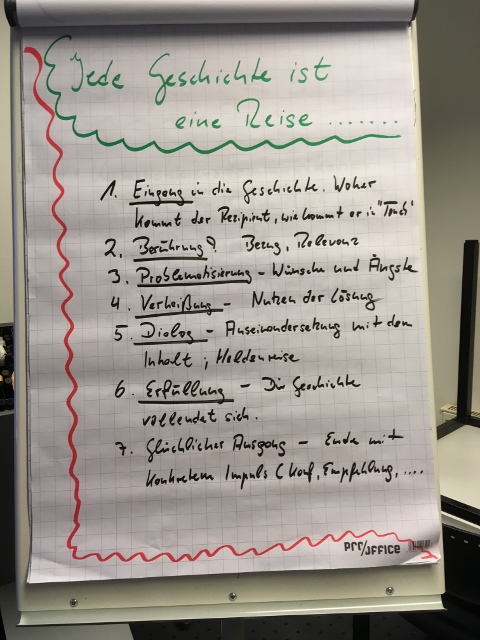 Jede Geschichte ist
eine Reise .......
1. Eingang in die Geschichte. Woher
kommt der Rezipient, wie kommt er in "Touch"
2. Berührung? Bezug, Relevanz
3. Problematisierung - Wünsche und Ängste
4. Verheißung - Nutzen der Lösung
5. Dialog - Auseinandersetzung mit dem
Inhalt, Heldenreise
6. Erfüllung - Die Geschichte
vollendet sich.
7. Glücklicher Ausgang - Ende mit
konkretem Impuls (Kauf, Empfehlung, ....
PRO/OFFICE